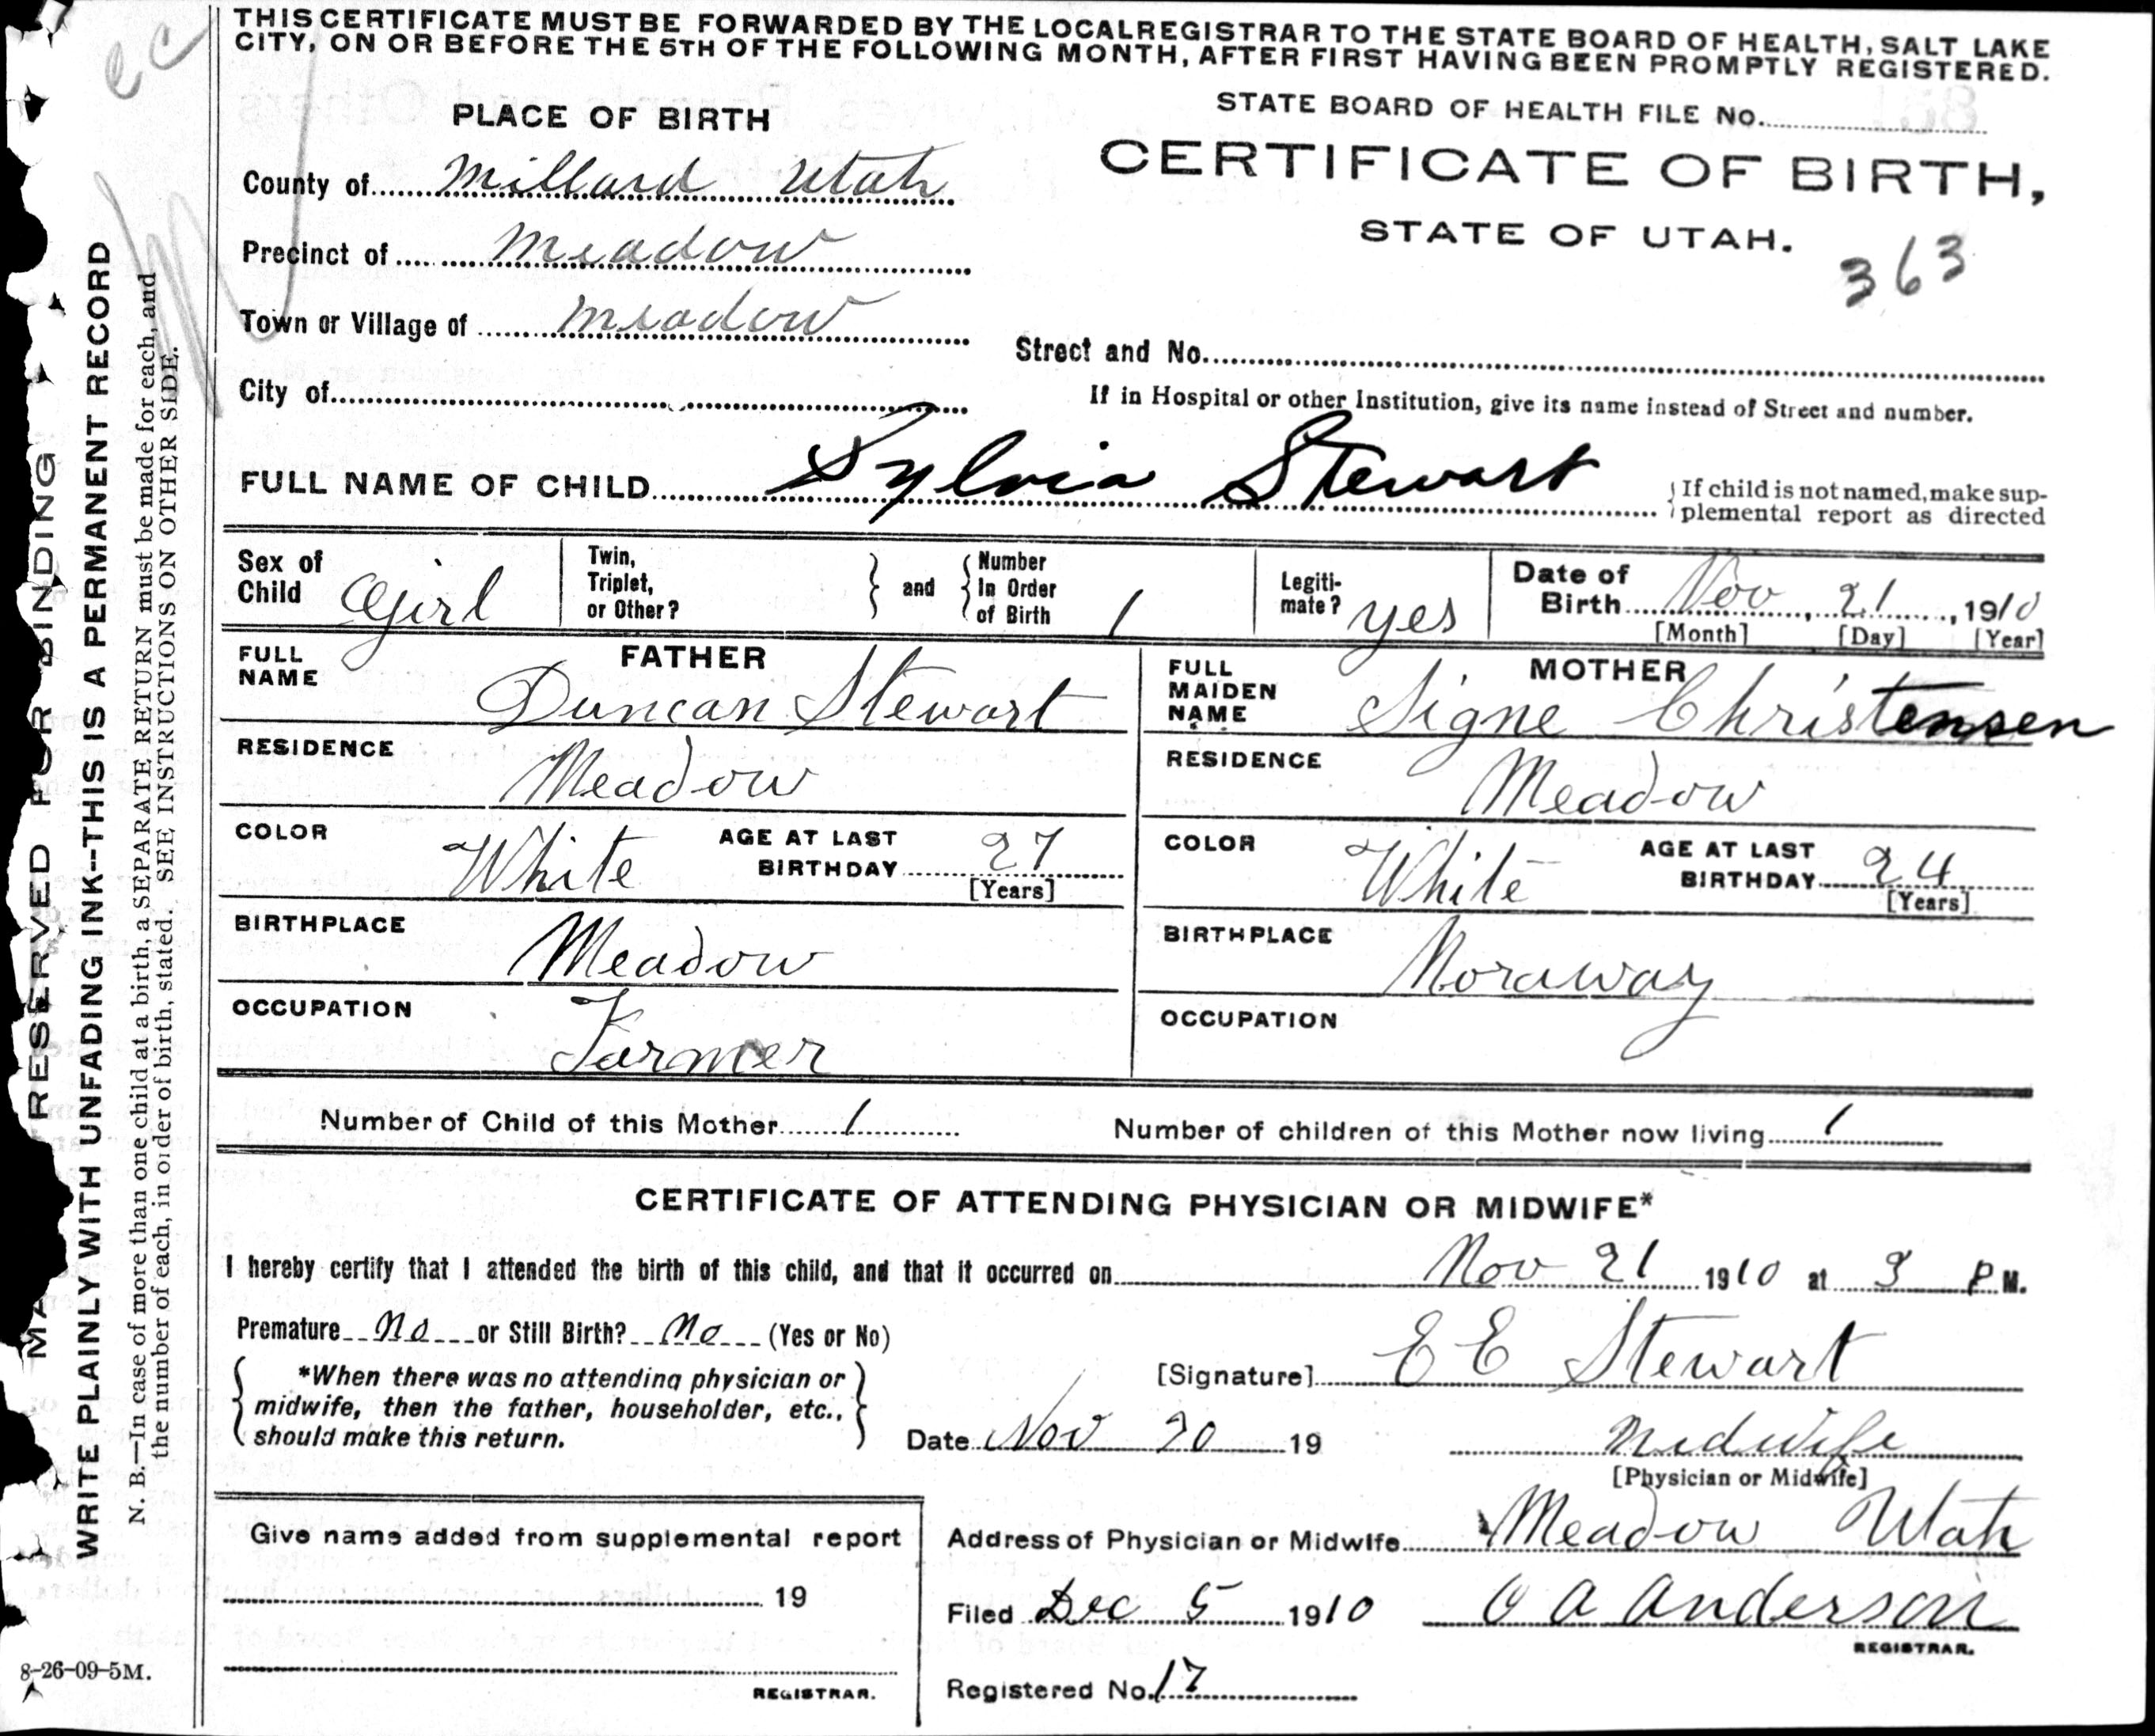 THIS CERTIFICATE MUST BE FORWARDED BY THE LOCAL REGISTRAR TO THE STATE BOARD OF HEALTH, SALT LAKE
CITY, ON OR BEFORE THE 5TH OF THE FOLLOWING MONTH, AFTER FIRST HAVING BEEN PROMPTLY REGISTERED.
PLACE OF BIRTH
STATE BOARD OF HEALTH FILE No.
County of Millard Utah
CERTIFICATE OF BIRTH,
STATE OF UTAH.
363
Precinct of Meadow
Town or Village of Meadow
Street and No.
City of
If in Hospital or other Institution, give its name instead of Street and number.
FULL NAME OF CHILD Sylvia Stewart
If child is not named, make sup-
plemental report as directed
Sex of Child Girl
Twin, Triplet, or Other? and Number In Order of Birth 1
Legiti-mate? yes
Date of Birth Nov, 21, 1910
[Month] [Day] [Year]
FATHER
FULL NAME Duncan Stewart
RESIDENCE Meadow
COLOR White AGE AT LAST BIRTHDAY 27
[Years]
BIRTHPLACE Meadow
OCCUPATION Farmer
MOTHER
FULL MAIDEN NAME Signe Christensen
RESIDENCE Meadow
COLOR White AGE AT LAST BIRTHDAY 24
[Years]
BIRTHPLACE Noraway
OCCUPATION
Number of Child of this Mother 1 Number of children of this Mother now living 1
CERTIFICATE OF ATTENDING PHYSICIAN OR MIDWIFE*
I hereby certify that I attended the birth of this child, and that it occurred on Nov 21 1910 at 3 P. M.
Premature No or Still Birth? No (Yes or No)
*When there was no attending physician or
midwife, then the father, householder, etc.,
should make this return.
[Signature] E E Stewart
Date Nov 30 19
Midwife
[Physician or Midwife]
Give name added from supplemental report
19
REGISTRAR.
Address of Physician or Midwife Meadow Utah
Filed Dec 5 1910 O A Anderson
REGISTRAR.
Registered No. 17
RESERVED FOR BINDING
WRITE PLAINLY WITH UNFADING INK--THIS IS A PERMANENT RECORD
N. B.—In case of more than one child at a birth, a SEPARATE RETURN must be made for each, and
the number of each, in order of birth, stated. SEE INSTRUCTIONS ON OTHER SIDE.
8-26-09-5M.